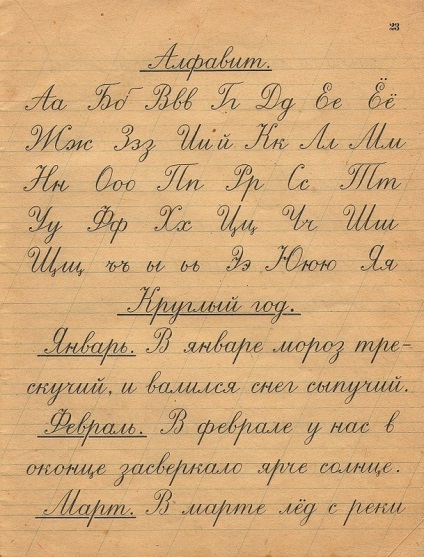 23
Алфавит.
Аа Бб Ввв Гг Дд Ее Ёё
Жж Ззз Ии й Кк Лл Мм
Нн Ооо Пп Рр Сс Тт
Уу Фф Хх Цц Чч Шш
Щщ ъъ ы ьь Ээ Юю Яя
Круглый год.
Январь. В январе мороз тре-
скучий, и валился снег сыпучий.
Февраль. В феврале у нас в
оконце засверкало ярче солнце.
Март. В марте лёд с реки